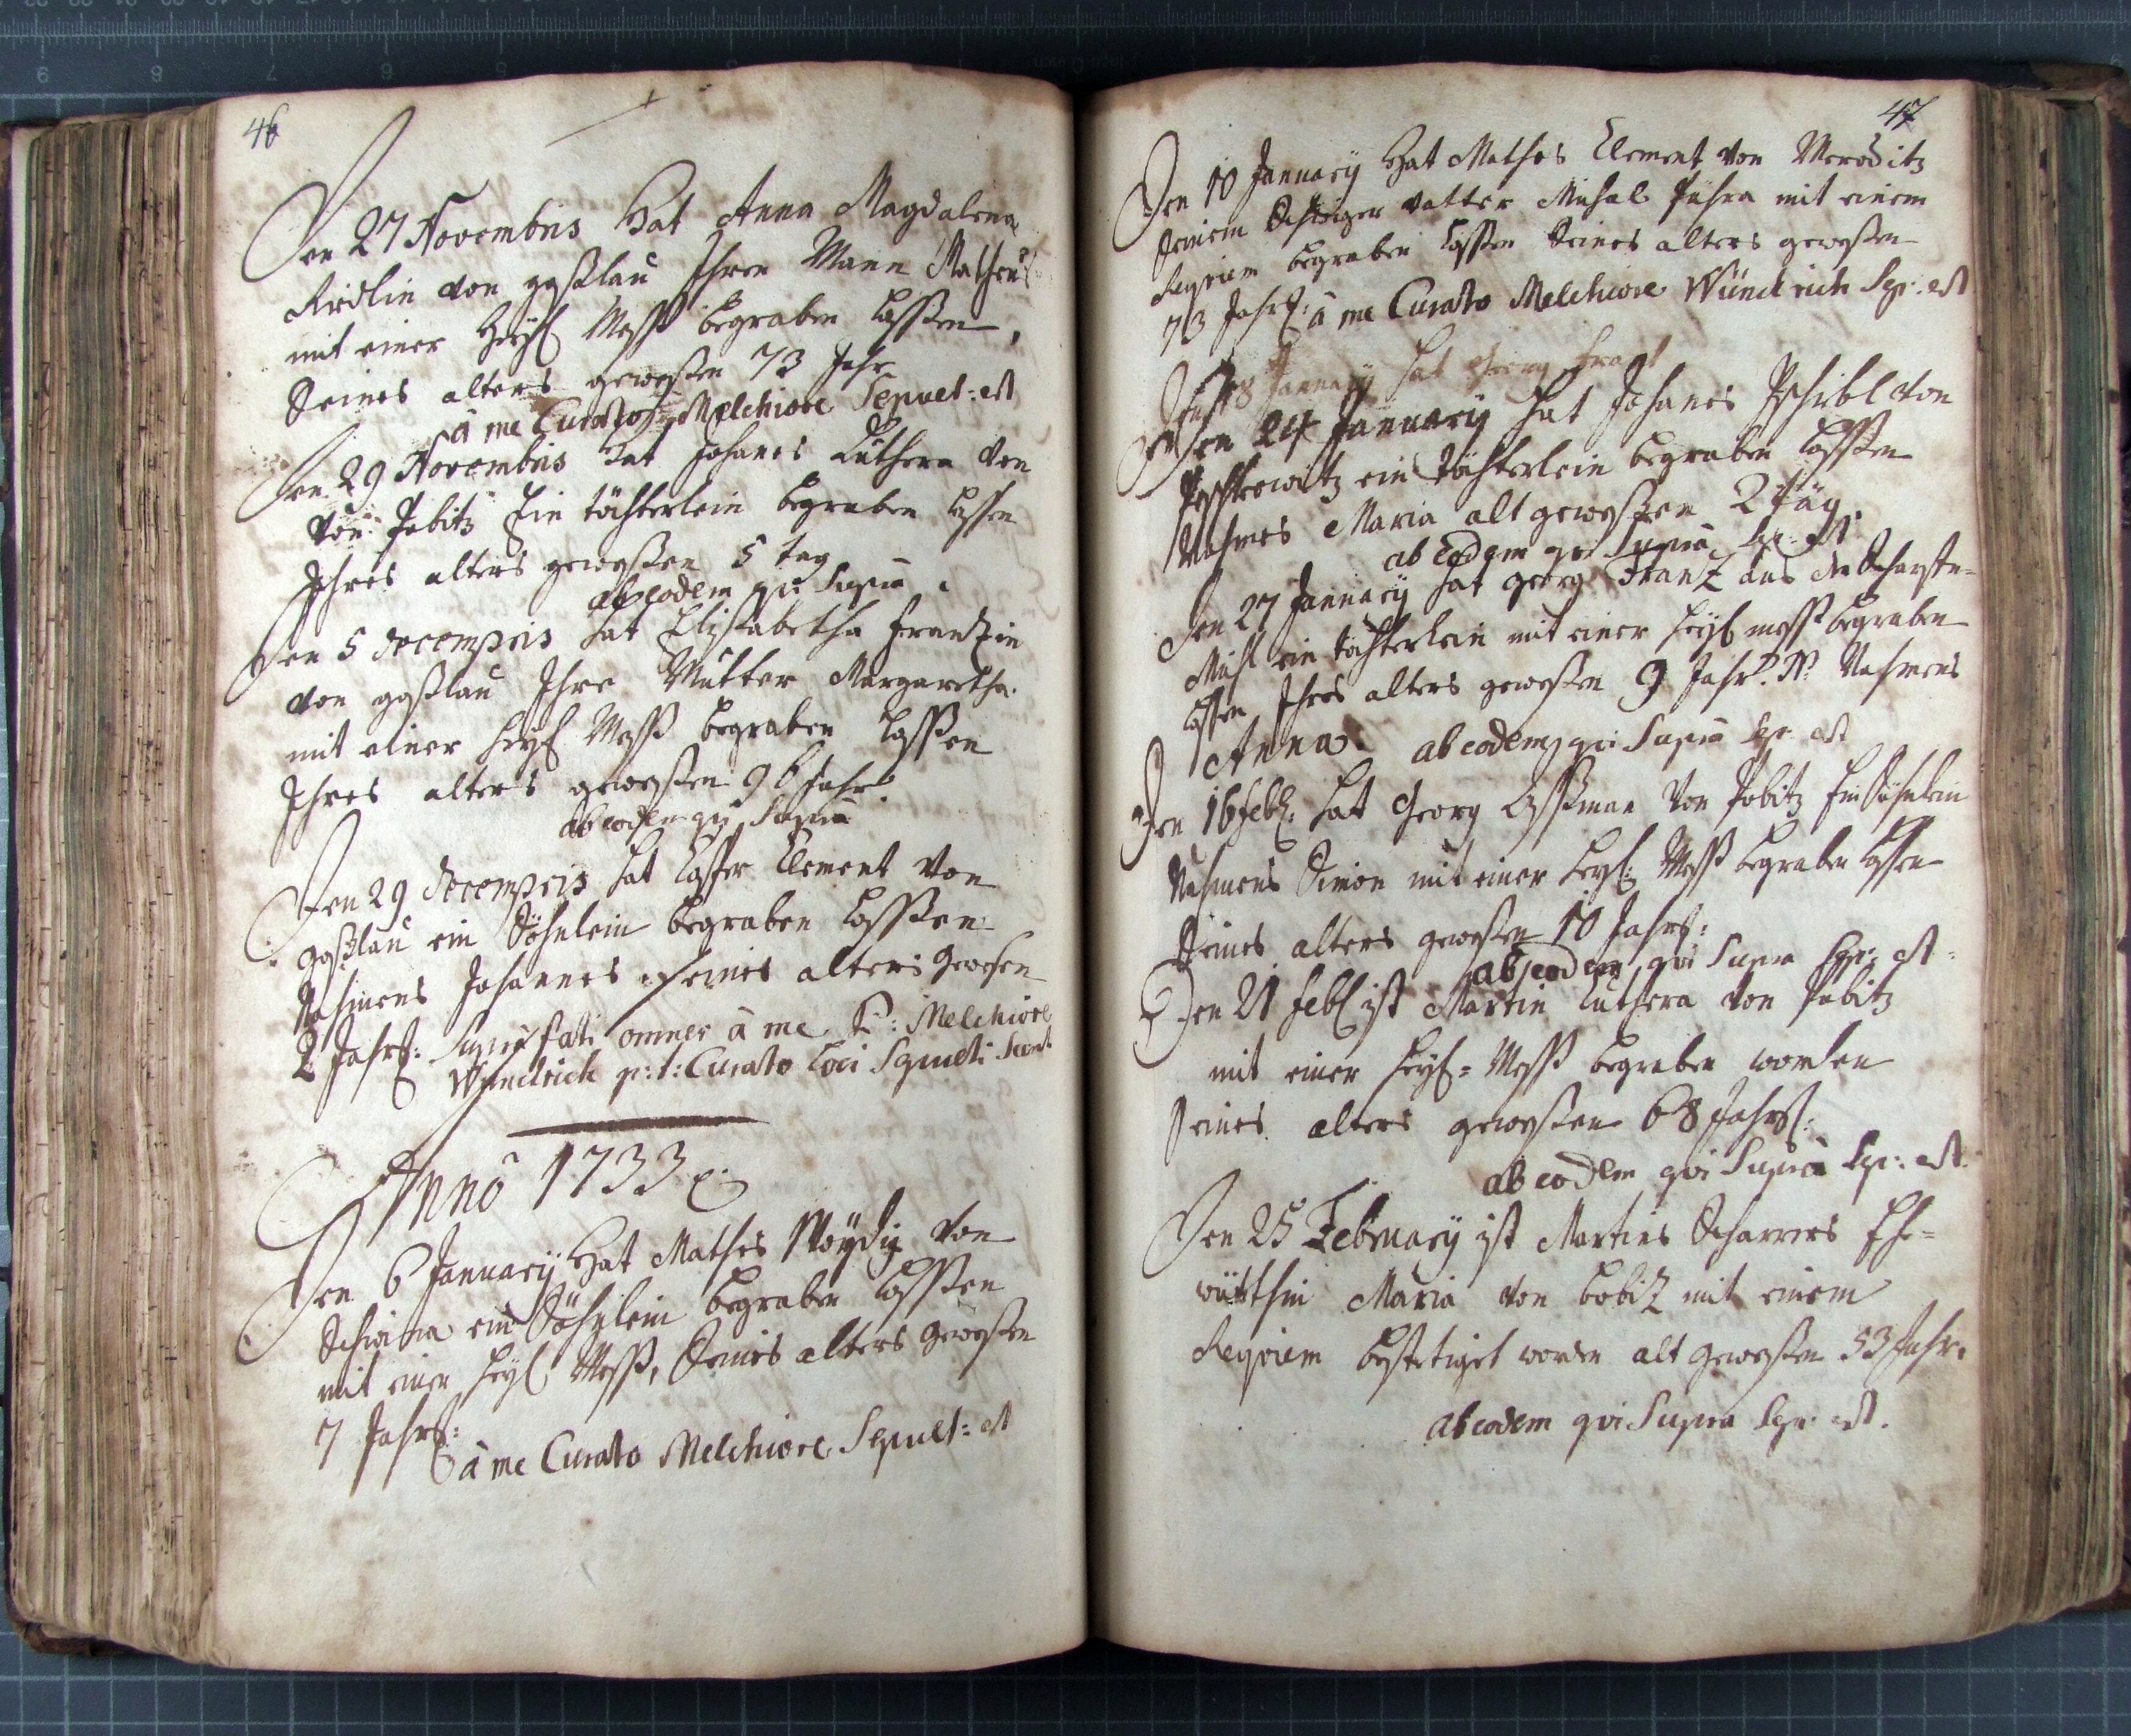 46
Den 27 Novembris Hat Anna Magdalena
von goßlau Ihren Mann Matheus
mit einer Heyl Meß begraben laßen,
Seines alters geweßen 73 Jahr
à me Curato Melchiore Sepult: est
Den 29 Novembris Hat Johanes Luthera von
von Pobitz Ein töchterlein begraben laßen
Ihres alters geweßen 5 tag
ab eodem qui Supra
Den 5 decempris hat Elisabetha Frantzin
von goßlau Ihre Mutter Margaretha
mit einer heyl Meß begraben laßen
Ihres alters geweßen 96 Jahr
ab eodem qui Supra
Den 29 decempris hat Casper Element von
goßlau ein Söhnlein begraben laßen
Nahmens Johannes seines alters gewesen
2 Jahr: Supra fati omnes à me P: Melchiore
Wündrich p:t: Curato Loci Sepulti Sunt
Anno 1733
Den 6 January Hat Mathes von
ein Söhnlein begraben laßen
mit einer heyl Meß, Seines alters geweßen
7 Jahr:
à me Curato Melchiore Sepult: est
47
Den 10 January Hat Mathes Element von Meroditz
Seinem Schwiger Vatter Michal mit einem
Requiem begraben laßen Seines alters geweßen
73 Jahr: à me Curato Melchiore Wündrich Sep: est
January hat Georg Frantz
Den 24 January hat Johanes von
ein töchterlein begraben laßen
Nahmes Maria alt geweßen 2 täg.
ab eodem qui Supra Sep: est
Den 27 January hat georg Frantz aus der
Mühl ein töchterlein mit einer heyl meß begraben
laßen Ihres alters geweßen 9 Jahr. Nahmens
Anna. ab eodem qui Supra Sep: est
Den 16 feb: hat Georg von Pobitz Ein Söhnlein
Nahmens Simon mit einer heyl: Meß begraben laßen
Seines alters geweßen 10 Jahr:
ab eodem qui Supra Sep: est
Den 21 feb ist Martin Luthera von Pobitz
mit einer heyl= Meß begraben worden
Seines alters geweßen 68 Jahr:
ab eodem qui Supra Sep: est
Den 25 February ist Martins Scharrers Ehe=
würthin Maria von bobitz mit einem
Requiem bestetiget worden alt geweßen 53 Jahr.
ab eodem qui Supra Sep: est.